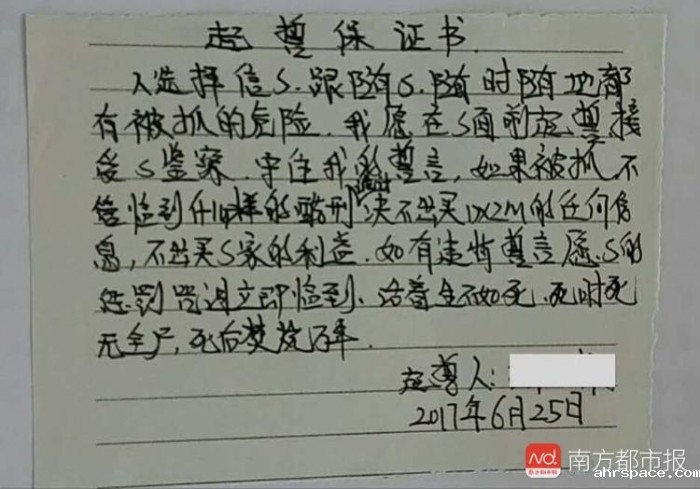 起誓保证书
人选择信S.跟随S.随时随地都
有被抓的危险.我愿在S面前起誓接
受S鉴察.守住我的誓言,如果被抓不
管临到什么样的酷刑 决不出卖DXZM的任何信
息,不出卖S家的利益.如有违背誓言愿S的
惩罚咒诅立即临到、活着生不如死.死时死
无全尸,死后焚烧万年.
起誓人:
2017年6月25日
Nd.
南方都市报
南方都市报
ahrspace.com